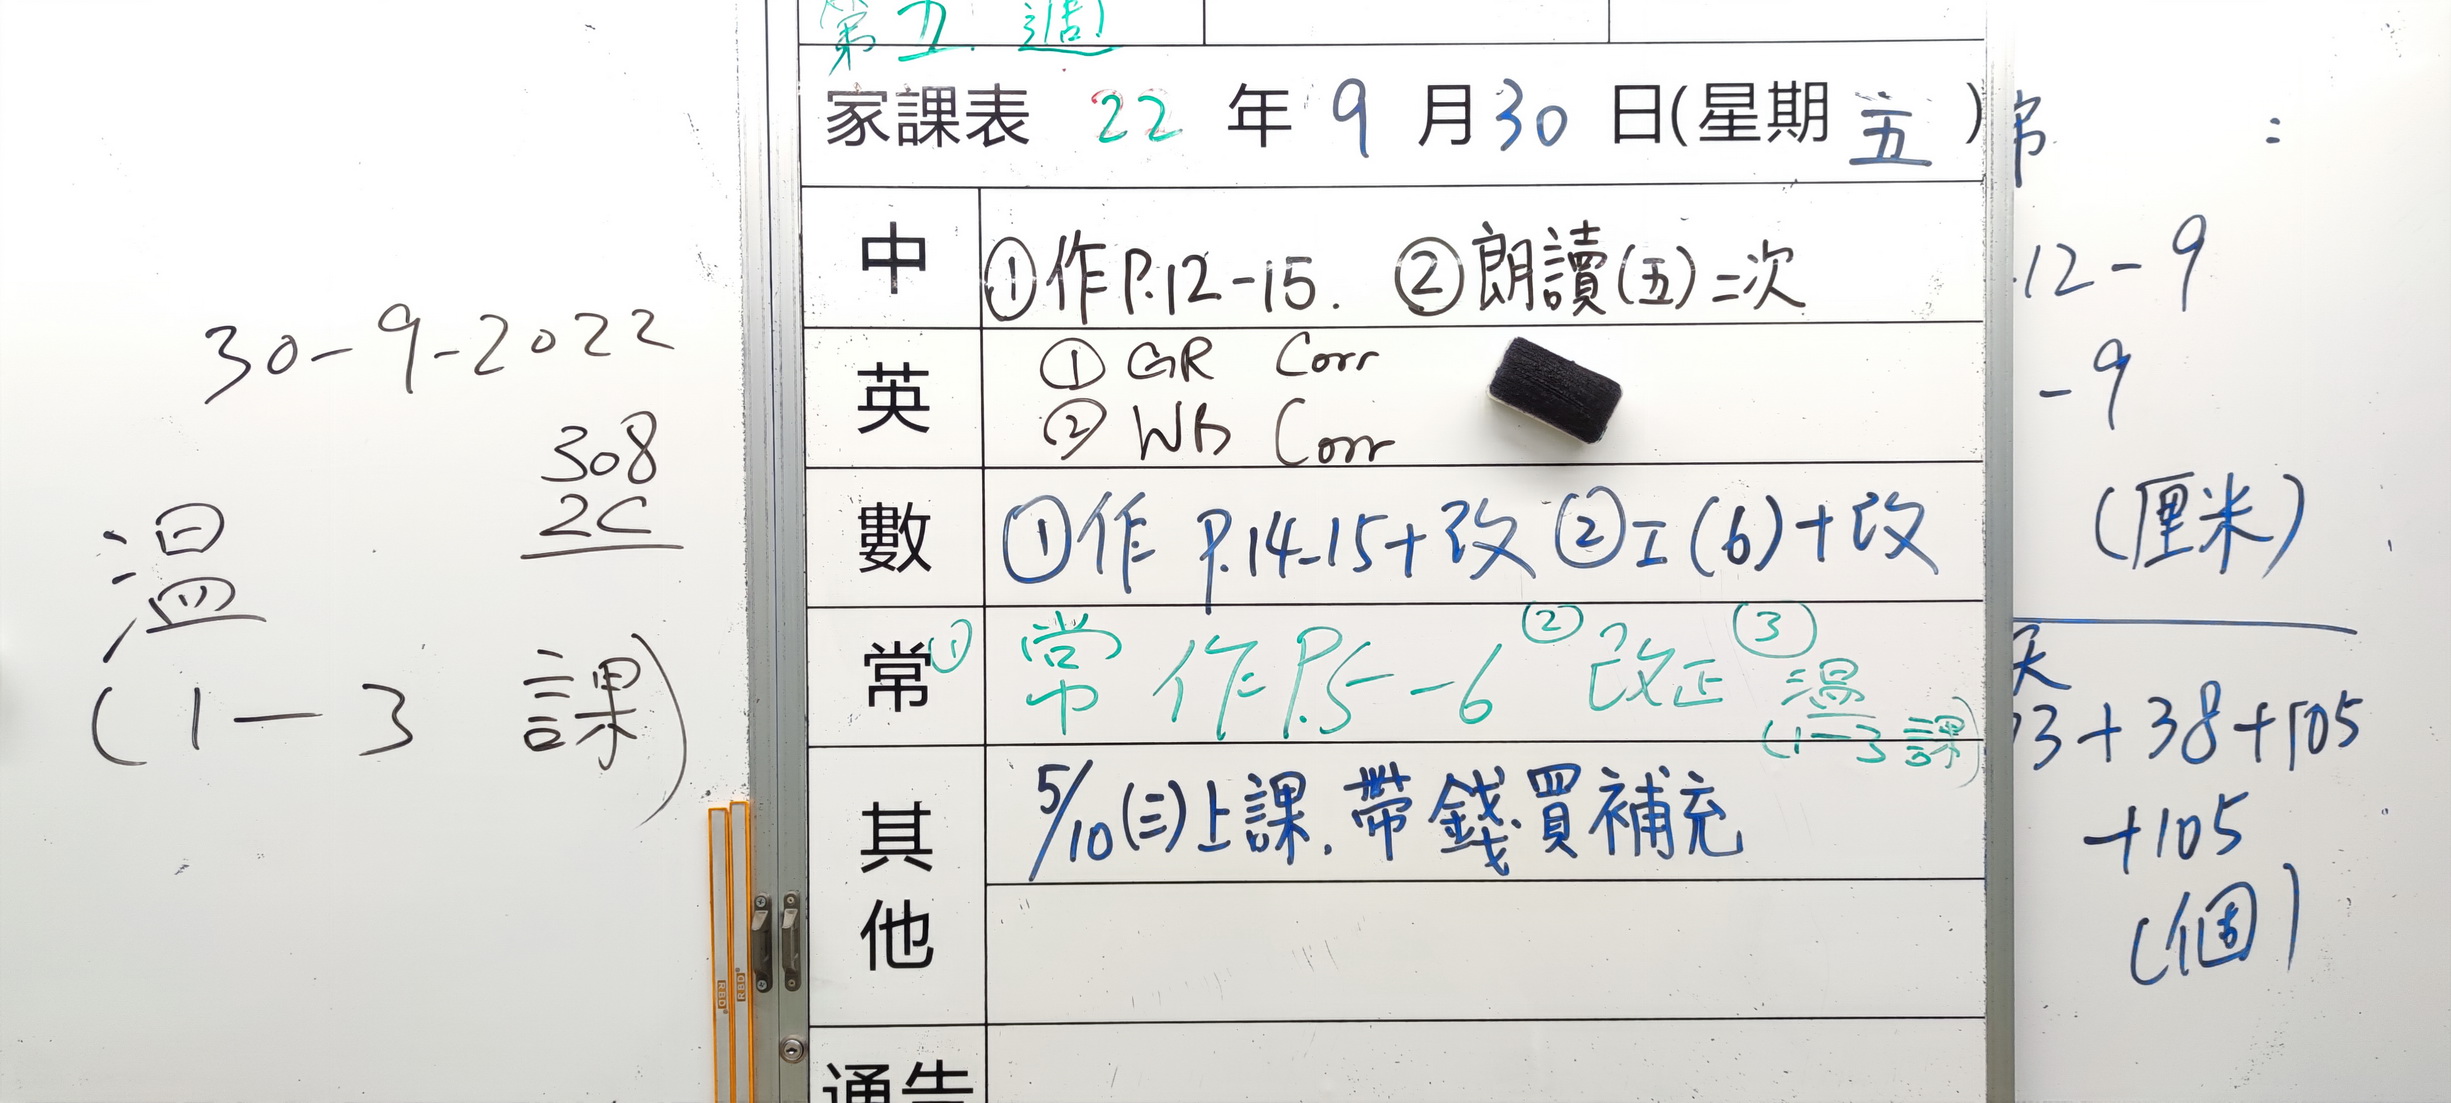 30-9-2022
308
2C
温
(1—3 課)
第五週
家課表 22 年 9 月 30 日(星期 五 )
中 ①作P.12-15. ②朗讀(五)二次
英 ① GR Corr
② WB Corr
數 ①作 P.14-15+改 ②工(6)+改
常 ① 常作P.5-6 ② 改正 ③ 温
(1—3課)
其他 5/10(三)上課.帶錢買補充
通告
:
12-9
-9
(厘米)
天
3+38+105
+105
(個)
RBD
RBD